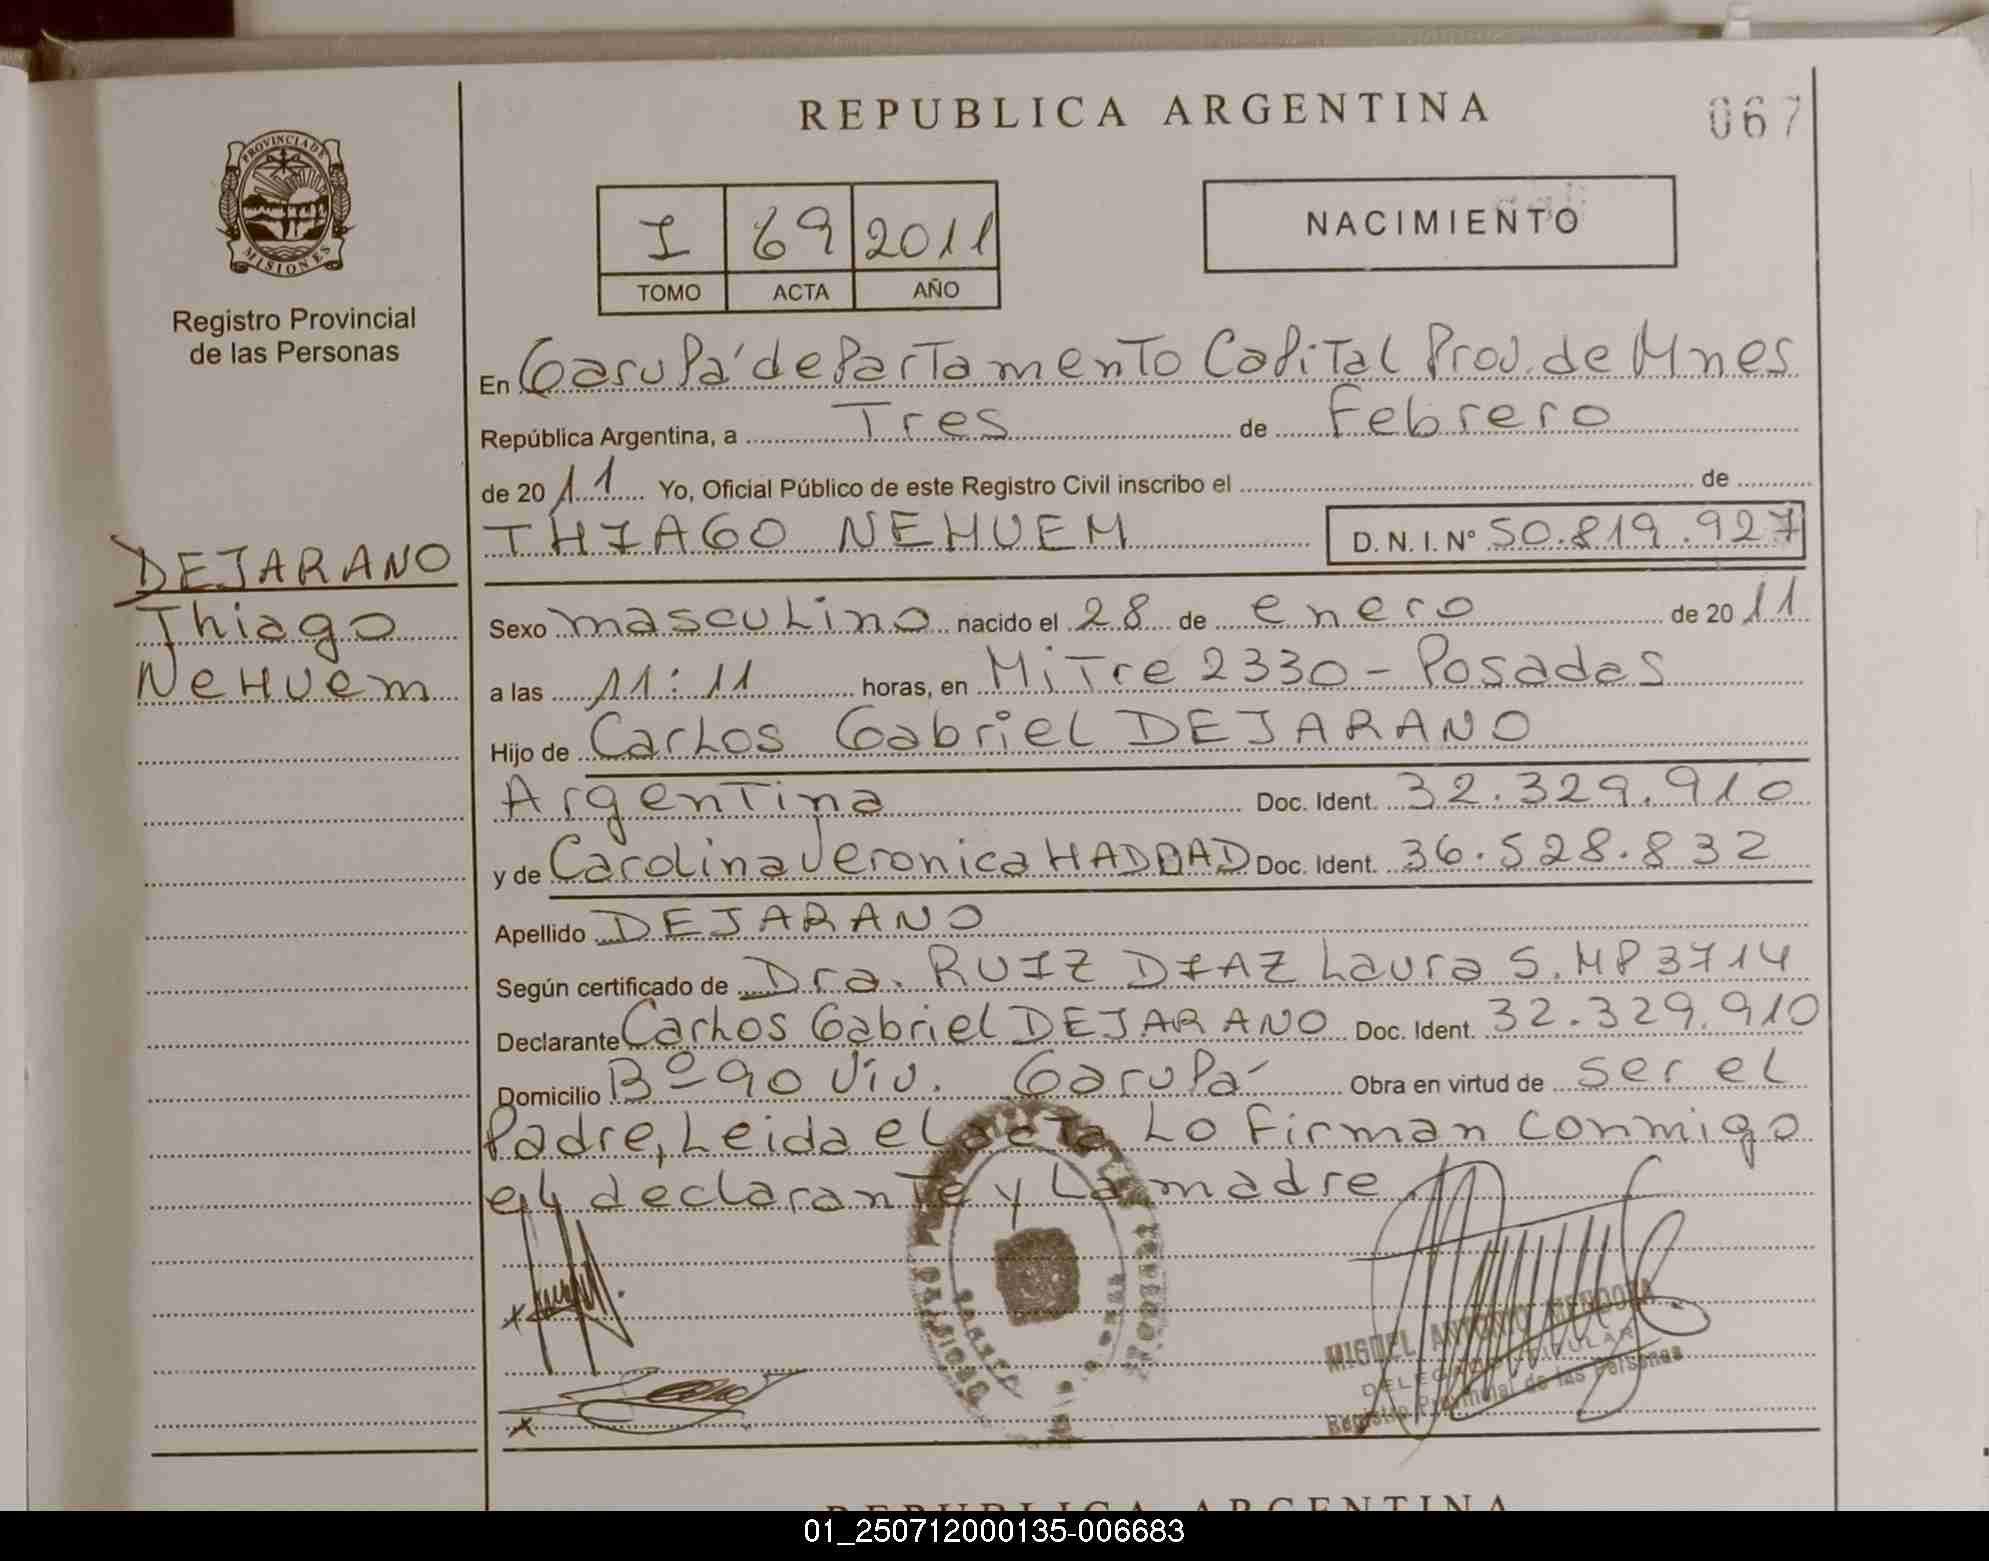 REPUBLICA ARGENTINA
067
PROVINCIA DE
MISIONES
Registro Provincial
de las Personas
I 69 2011
TOMO ACTA AÑO
NACIMIENTO
En Garupá departamento Capital Prov. de Mnes
República Argentina, a Tres de Febrero
de 20 11 Yo, Oficial Público de este Registro Civil inscribo el de
THIAGO NEHUEM D. N. I. N° 50.819.927
DEJARANO
Thiago
NeHuem
Sexo masculino nacido el 28 de enero de 20 11
a las 11:11 horas, en Mitre 2330 - Posadas
Hijo de Carlos Gabriel DEJARANO
Argentina Doc. Ident. 32.329.910
y de Carolina Veronica HADDAD Doc. Ident. 36.528.832
Apellido DEJARANO
Según certificado de Dra. RUIZ DIAZ Laura S. MP 3714
Declarante Carlos Gabriel DEJARANO Doc. Ident. 32.329.910
Domicilio Bº 90 Viv. Garupá Obra en virtud de ser el
Padre, Leida el acta Lo Firman conmigo
el declarante y La madre
MIGUEL ANTONIO MENDOZA
DELEGADO TITULAR
Registro Provincial de las Personas
REPUBLICA ARGENTINA
01_250712000135-006683